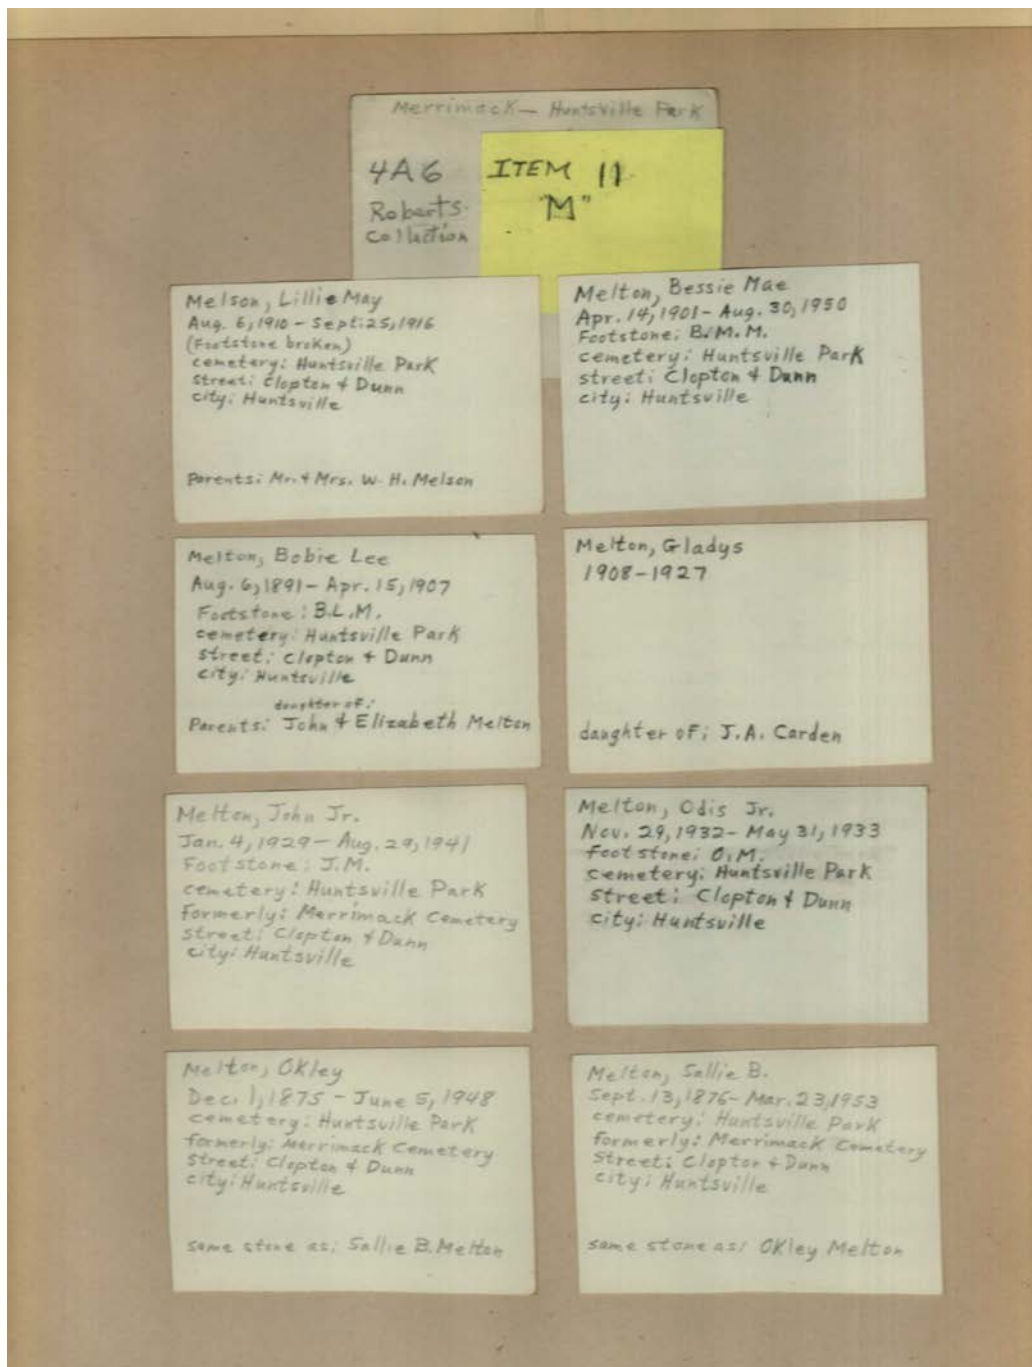 Merrimack - Huntsville Park
4A6
Roberts
Collection
ITEM 11
"M"
Melson, Lillie May
Aug. 6, 1910 - Sept. 25, 1916
(Footstone broken)
cemetery: Huntsville Park
street: Clopton & Dunn
city: Huntsville
Parents: Mr. & Mrs. W. H. Melson
Melton, Bessie Mae
Apr. 14, 1901 - Aug. 30, 1950
Footstone: B.M.M.
cemetery: Huntsville Park
street: Clopton & Dunn
city: Huntsville
Melton, Bobie Lee
Aug. 6, 1891 - Apr. 15, 1907
Footstone: B.L.M.
cemetery: Huntsville Park
street: Clopton & Dunn
city: Huntsville
daughter of:
Parents: John & Elizabeth Melton
Melton, Gladys
1908-1927
daughter of; J.A. Carden
Melton, John Jr.
Jan. 4, 1929 - Aug. 29, 1941
Footstone: J.M.
cemetery: Huntsville Park
formerly: Merrimack Cemetery
street: Clopton & Dunn
city: Huntsville
Melton, Odis Jr.
Nov. 29, 1932 - May 31, 1933
footstone: O.M.
cemetery: Huntsville Park
street: Clopton & Dunn
city: Huntsville
Melton, Okley
Dec. 1, 1875 - June 5, 1948
cemetery: Huntsville Park
formerly: Merrimack Cemetery
street: Clopton & Dunn
city: Huntsville
same stone as: Sallie B. Melton
Melton, Sallie B.
Sept. 13, 1876 - Mar. 23, 1953
cemetery: Huntsville Park
formerly: Merrimack Cemetery
street: Clopton & Dunn
city: Huntsville
same stone as: Okley Melton